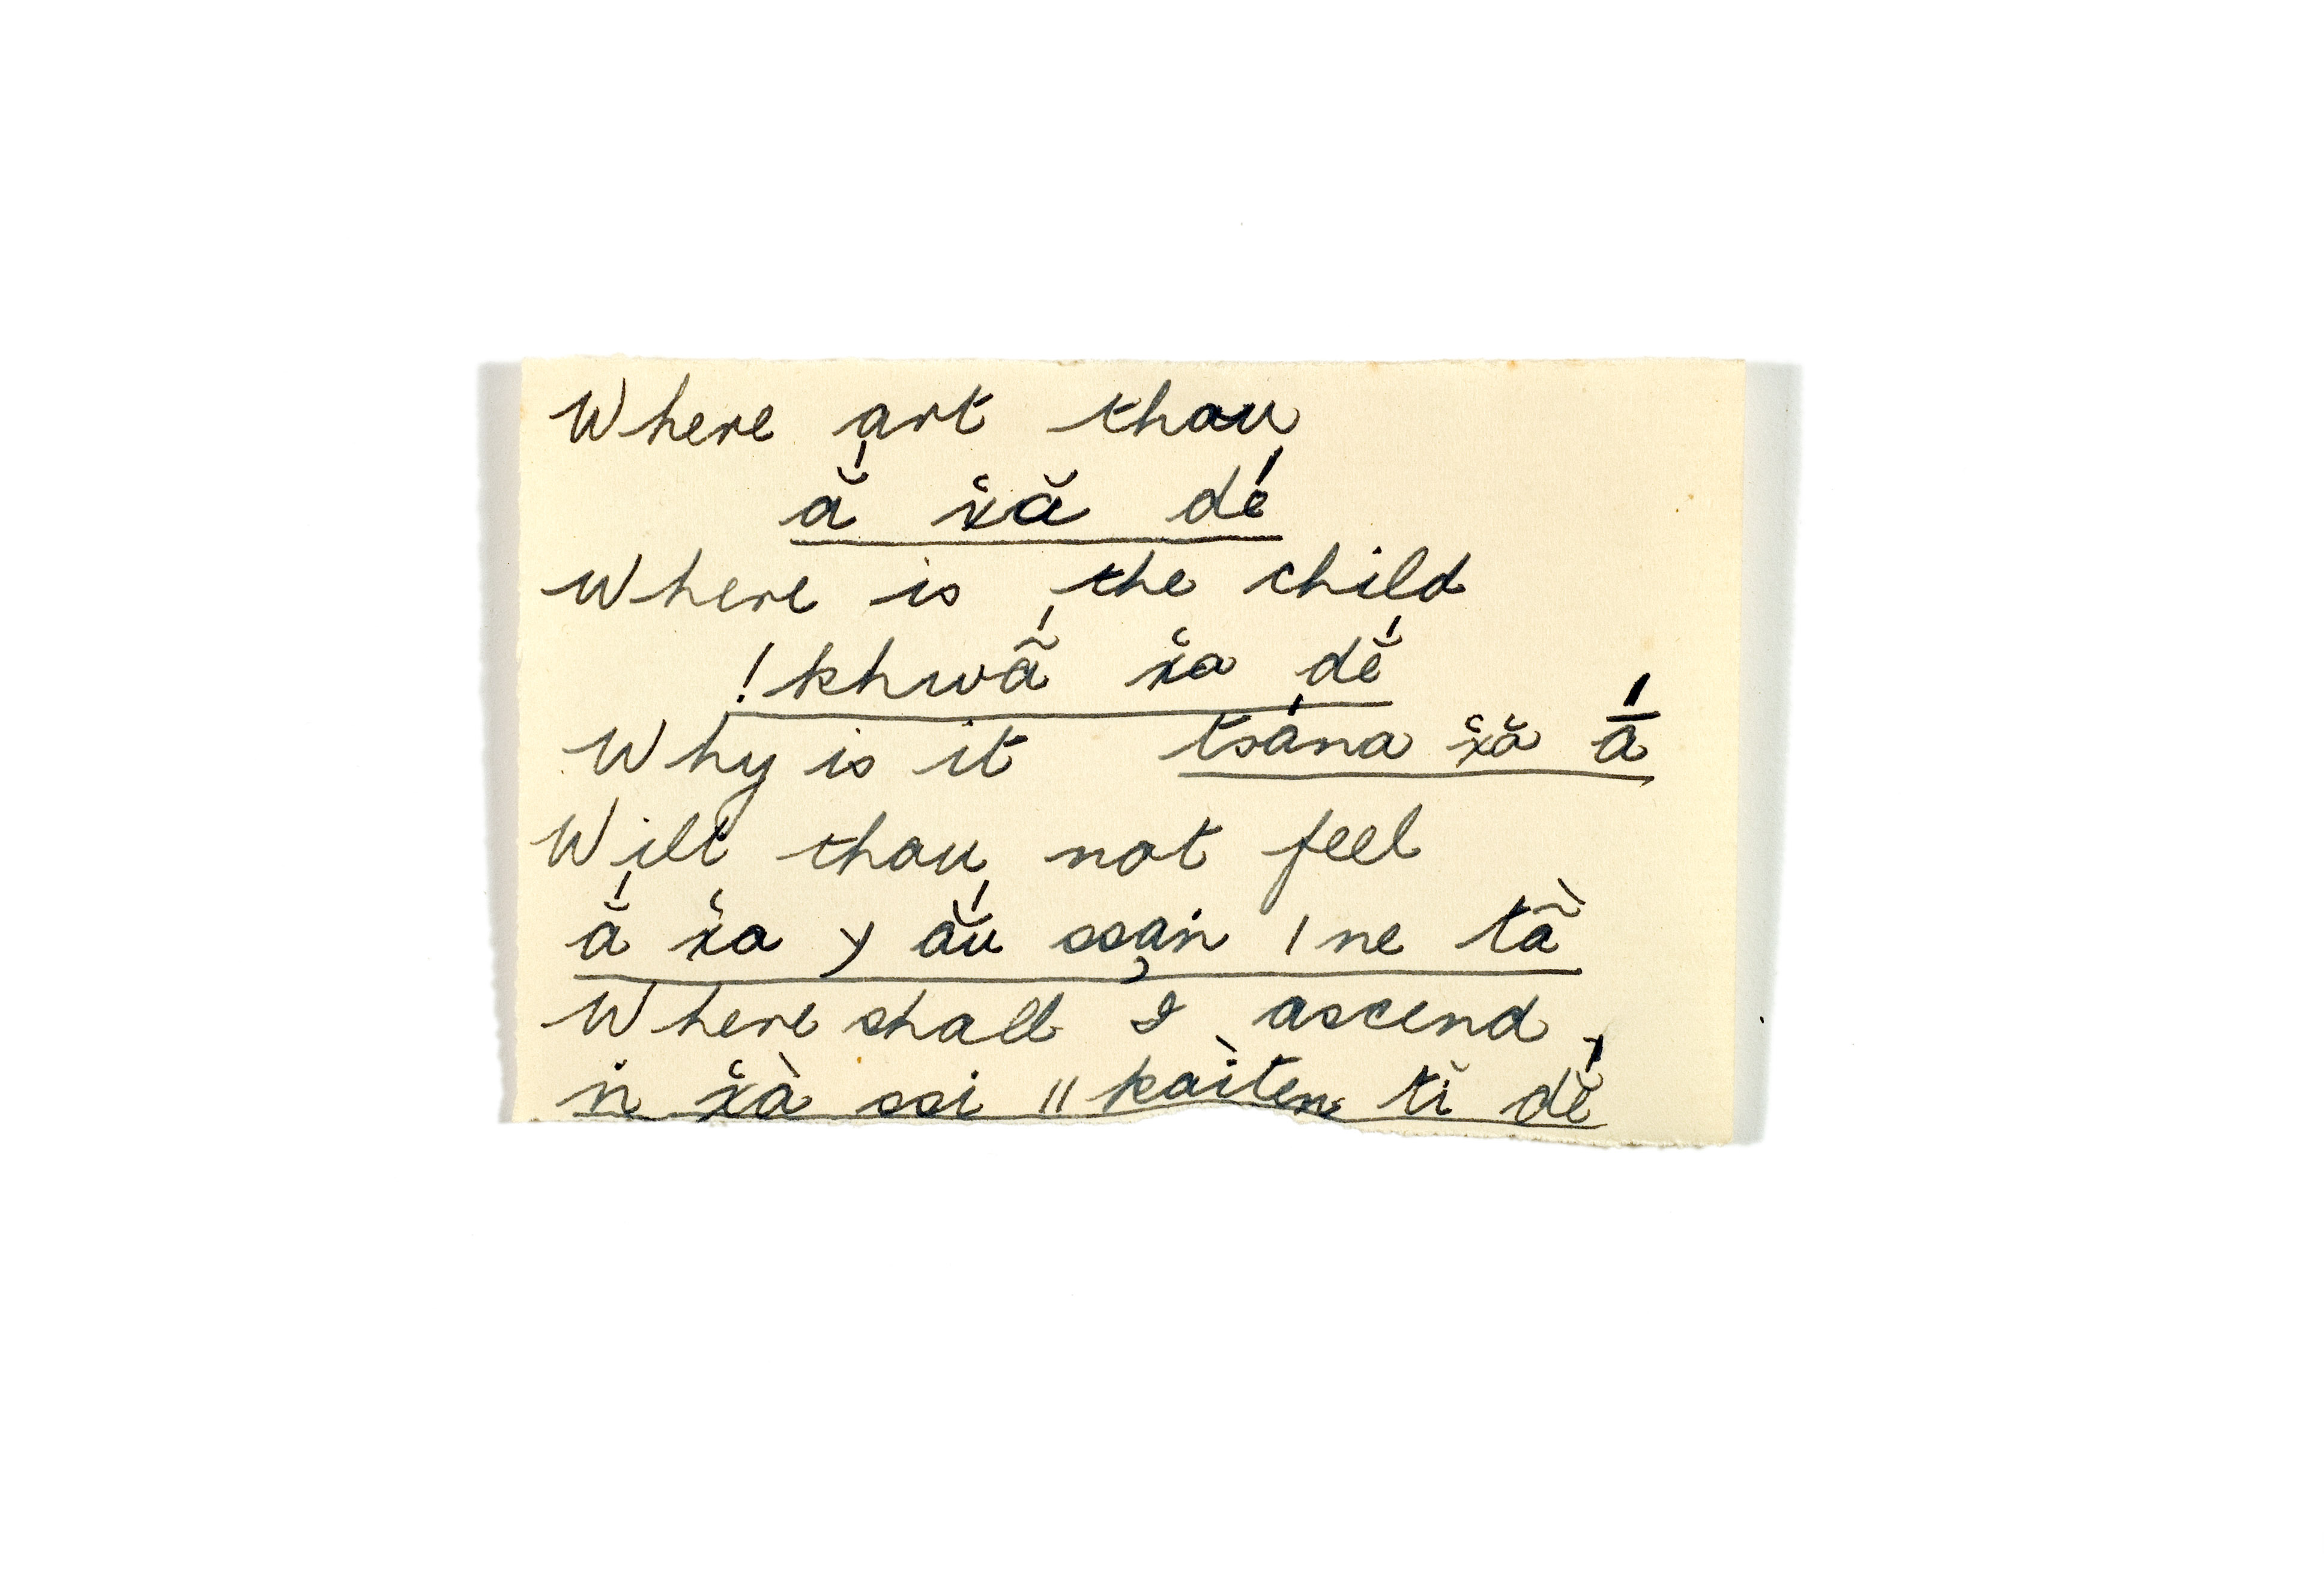 Where art thou
ắ x̌ă dé
Where is the child
!khwã́ x̌a dě́
Why is it tsána x̌ă ā́
Wilt thou not feel
ắ x̌a ⅄ ắu ssa̦ṅ ǀne tã̀
Where shall I ascend
ṅ x̌à ssi ǁkaìten tĭ dě́